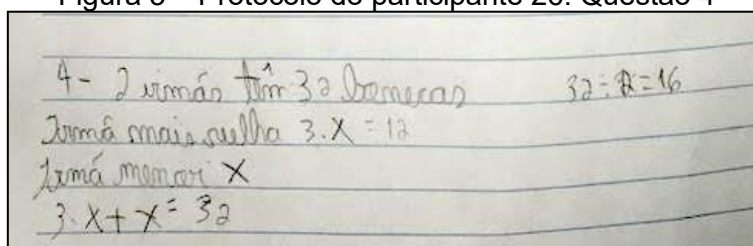 Figura 3 – Protocolo do participante 26: Questão 4
4- 2 irmãs têm 32 bonecas 32 ÷ 2 = 16
Irmã mais velha 3.X = 12
Irmã menor X
3.X+X = 32